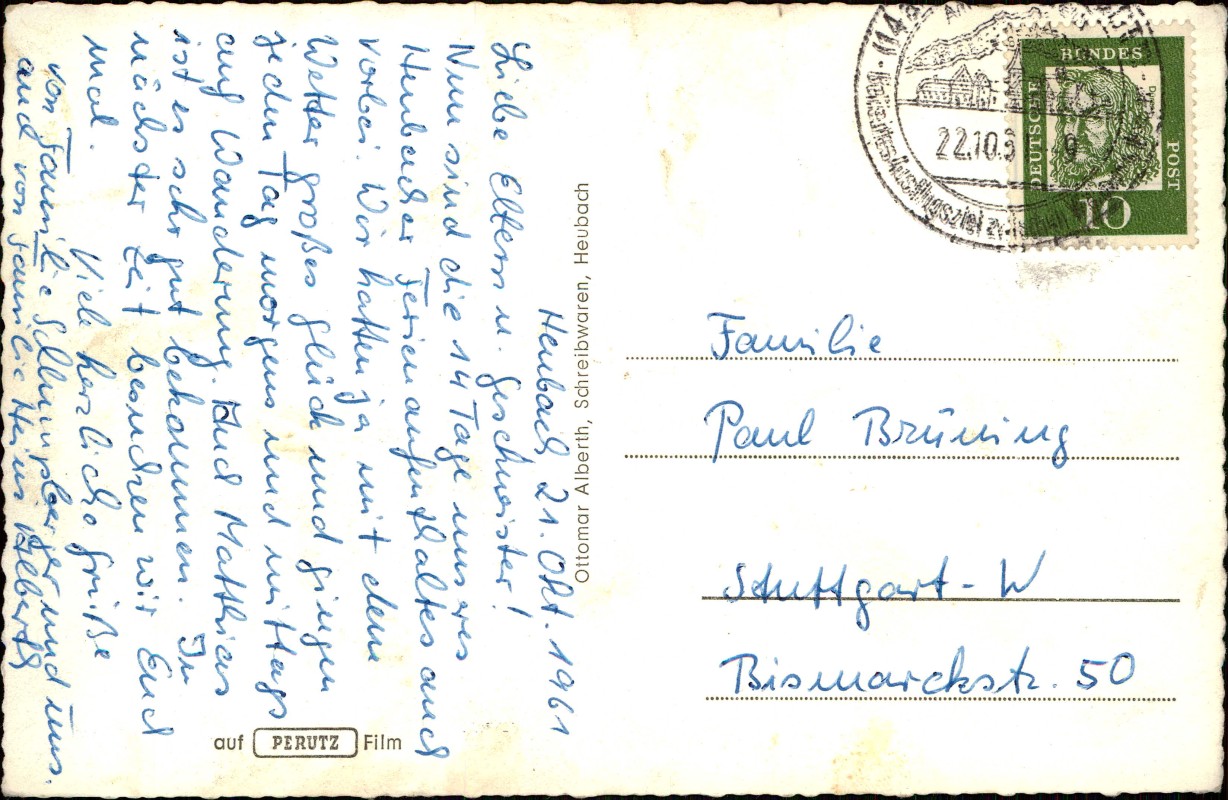 Heubach, 21. Okt. 1961
Liebe Eltern u. Geschwister!
Nun sind die 14 Tage unseres
Heubacher Ferienaufenthaltes auch
vorbei. Wir hatten ja mit dem
Wetter großes Glück und gingen
jeden Tag morgens und mittags
auf Wanderung. Auch Matthias
ist es sehr gut bekommen. In
nächster Zeit besuchen wir Euch
mal. Viele herzliche Grüße
von Familie und uns.
und von Familie Heinz Alberth
Ottomar Alberth, Schreibwaren, Heubach
auf PERUTZ Film
22.10.6
DEUTSCHE BUNDES POST
10
Familie
Paul Brüning
Stuttgart - W
Bismarckstr. 50